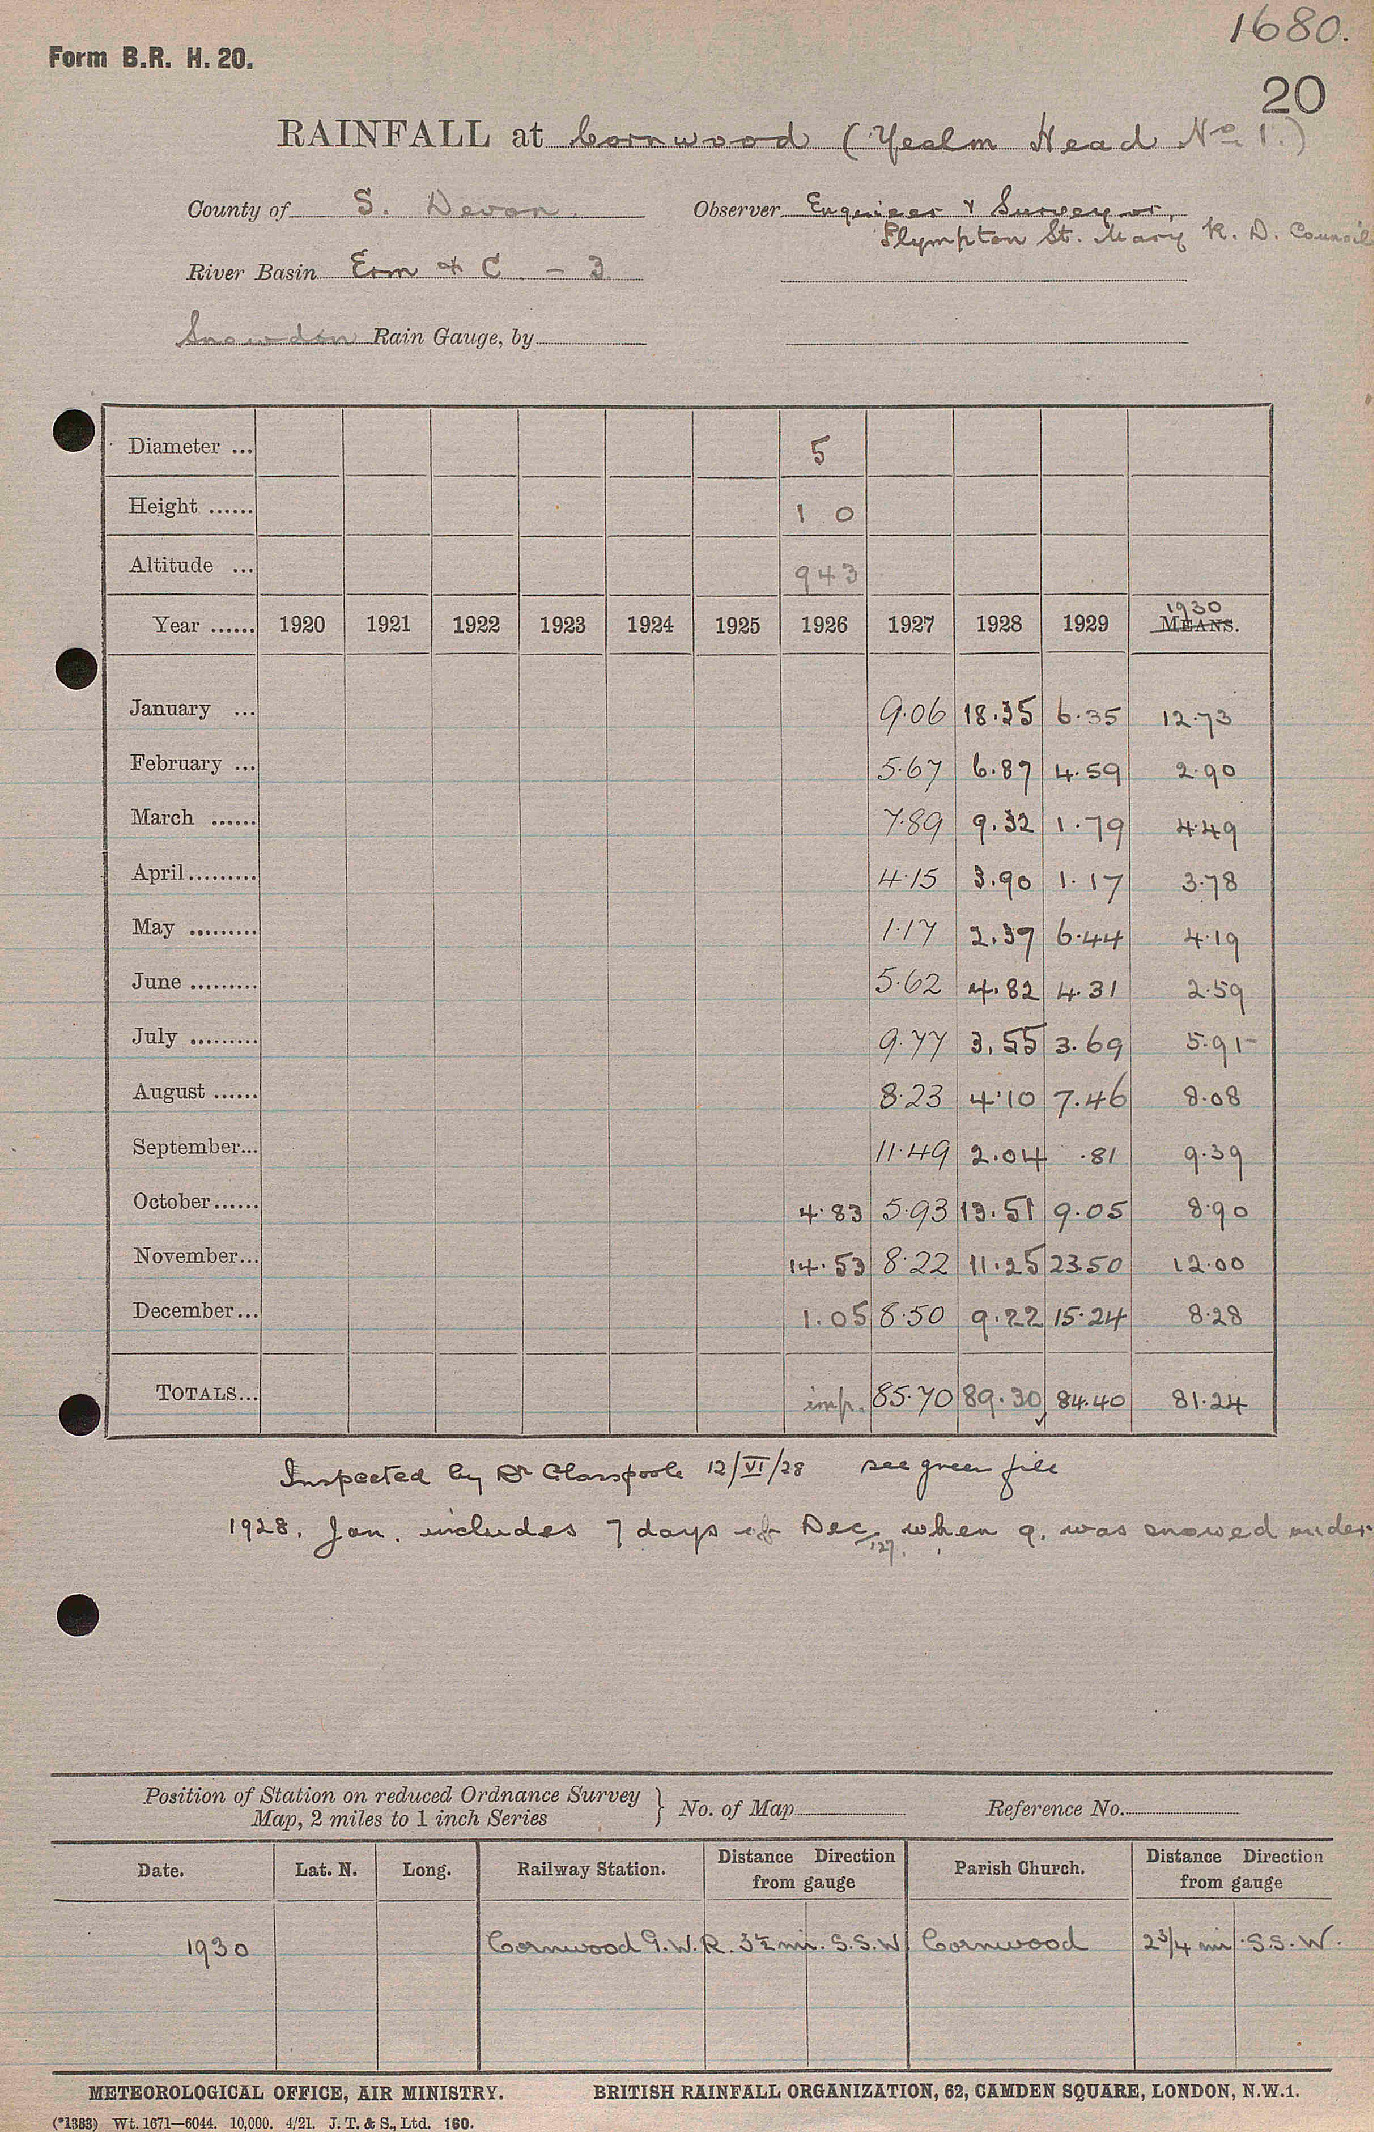 1680.
Form B.R. H. 20.
20
RAINFALL at Cornwood (Yealm Head No 1.)
County of S. Devon. Observer Engineer & Surveyor,
Plympton St. Mary R. D. Council
River Basin Erm & C - 3
Snowdon Rain Gauge, by
Diameter ... 5
Height ...... 1 0
Altitude ... 943
1930
Year ...... 1920 1921 1922 1923 1924 1925 1926 1927 1928 1929 MEANS.
January ... 9.06 18.35 6.35 12.73
February ... 5.67 6.87 4.59 2.90
March ...... 7.89 9.32 1.79 4.49
April ......... 4.15 3.90 1.17 3.78
May ......... 1.17 2.37 6.44 4.19
June ......... 5.62 4.82 4.31 2.59
July ......... 9.77 3.55 3.69 5.91
August ...... 8.23 4.10 7.46 8.08
September... 11.49 2.04 .81 9.39
October ...... 4.83 5.93 13.51 9.05 8.90
November... 14.53 8.22 11.25 23.50 12.00
December... 1.05 8.50 9.22 15.24 8.28
TOTALS... imp. 85.70 89.30 84.40 81.24
Inspected by Dr Glasspoole 12/VI/28 see green file
1928. Jan. includes 7 days of Dec. when g. was snowed under
'27.
Position of Station on reduced Ordnance Survey
Map, 2 miles to 1 inch Series } No. of Map Reference No.
Date. Lat. N. Long. Railway Station. Distance Direction from gauge Parish Church. Distance Direction from gauge
1930 Cornwood G.W.R. 3½ mi. S.S.W. Cornwood 2¾ mi S.S.W.
METEOROLOGICAL OFFICE, AIR MINISTRY. BRITISH RAINFALL ORGANIZATION, 62, CAMDEN SQUARE, LONDON, N.W.1.
(*1383) Wt. 1671—6044. 10,000. 4/21. J. T. & S., Ltd. 160.